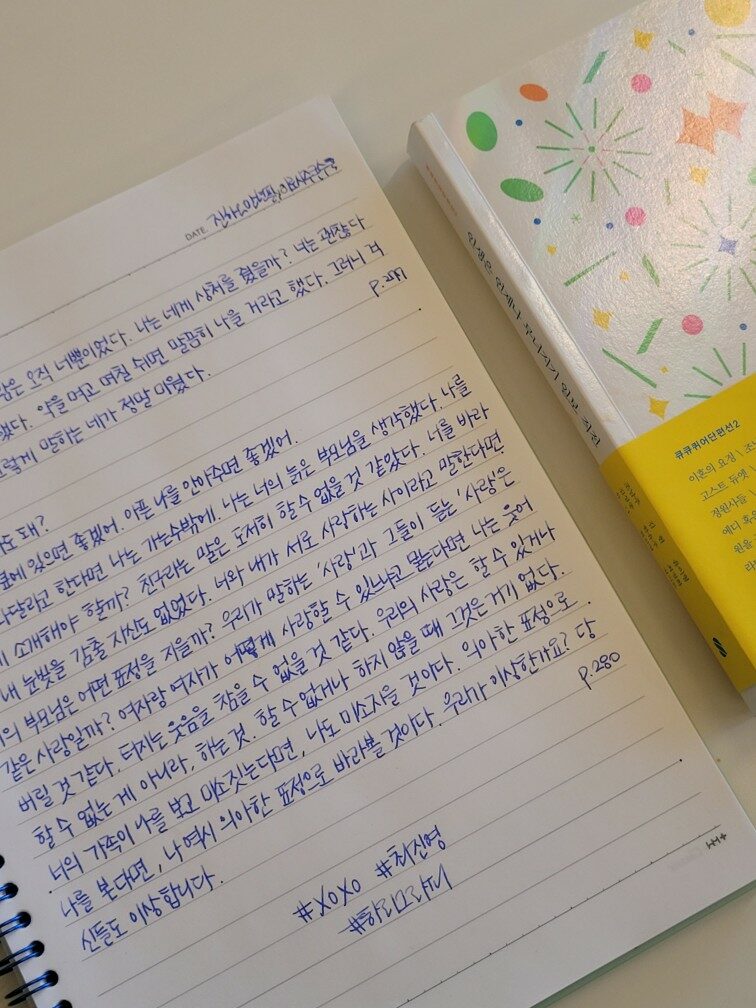 DATE.
람은 오직 너뿐이었다. 나는 네게 상처를 줬을까? 너는 괜찮다
했다. 약을 먹고 며칠 쉬면 말끔히 나을 거라고 했다. 그러니
그렇게 말하는 네가 정말 미웠다.
p.277
도 돼?
곁에 있으면 좋겠어. 아픈 나를 안아주면 좋겠어.
와달라고 한다면 나는 가는수밖에. 나는 너의 늙은 부모님을 생각했다. 나를
소개해야 할까? 친구라는 말은 도저히 할 수 없을 것 같았다. 너를 바라
내 눈빛을 감출 자신도 없었다. 너와 내가 서로 사랑하는 사이라고 말한다면
의 부모님은 어떤 표정을 지을까? 우리가 말하는 '사랑'과 그들이 듣는 '사랑'은
같은 사랑일까? 여자랑 여자가 어떻게 사랑할 수 있느냐고 묻는다면 나는 웃어
버릴 것 같다. 터지는 웃음을 참을 수 없을 것 같다. 우리의 사랑은 할 수 있거나
할 수 없는 게 아니라, 하는 것. 할 수 없거나 하지 않을 때 그것은 거기 없다.
너의 가족이 나를 보고 미소짓는다면, 나도 미소지을 것이다. 의아한 표정으로
나를 본다면, 나 역시 의아한 표정으로 바라볼 것이다. 우리가 이상한가요? 당
신들도 이상합니다.
p.280
#XOXO #최진영
인생은 언제나 무너지기 일보 직전
큐큐퀴어단편선2
이혼의 요정
고스트 듀엣
정원사들
에디